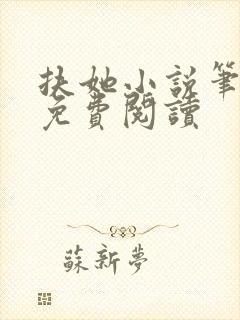 扶她小說筆
免費閱讀
蘇新夢